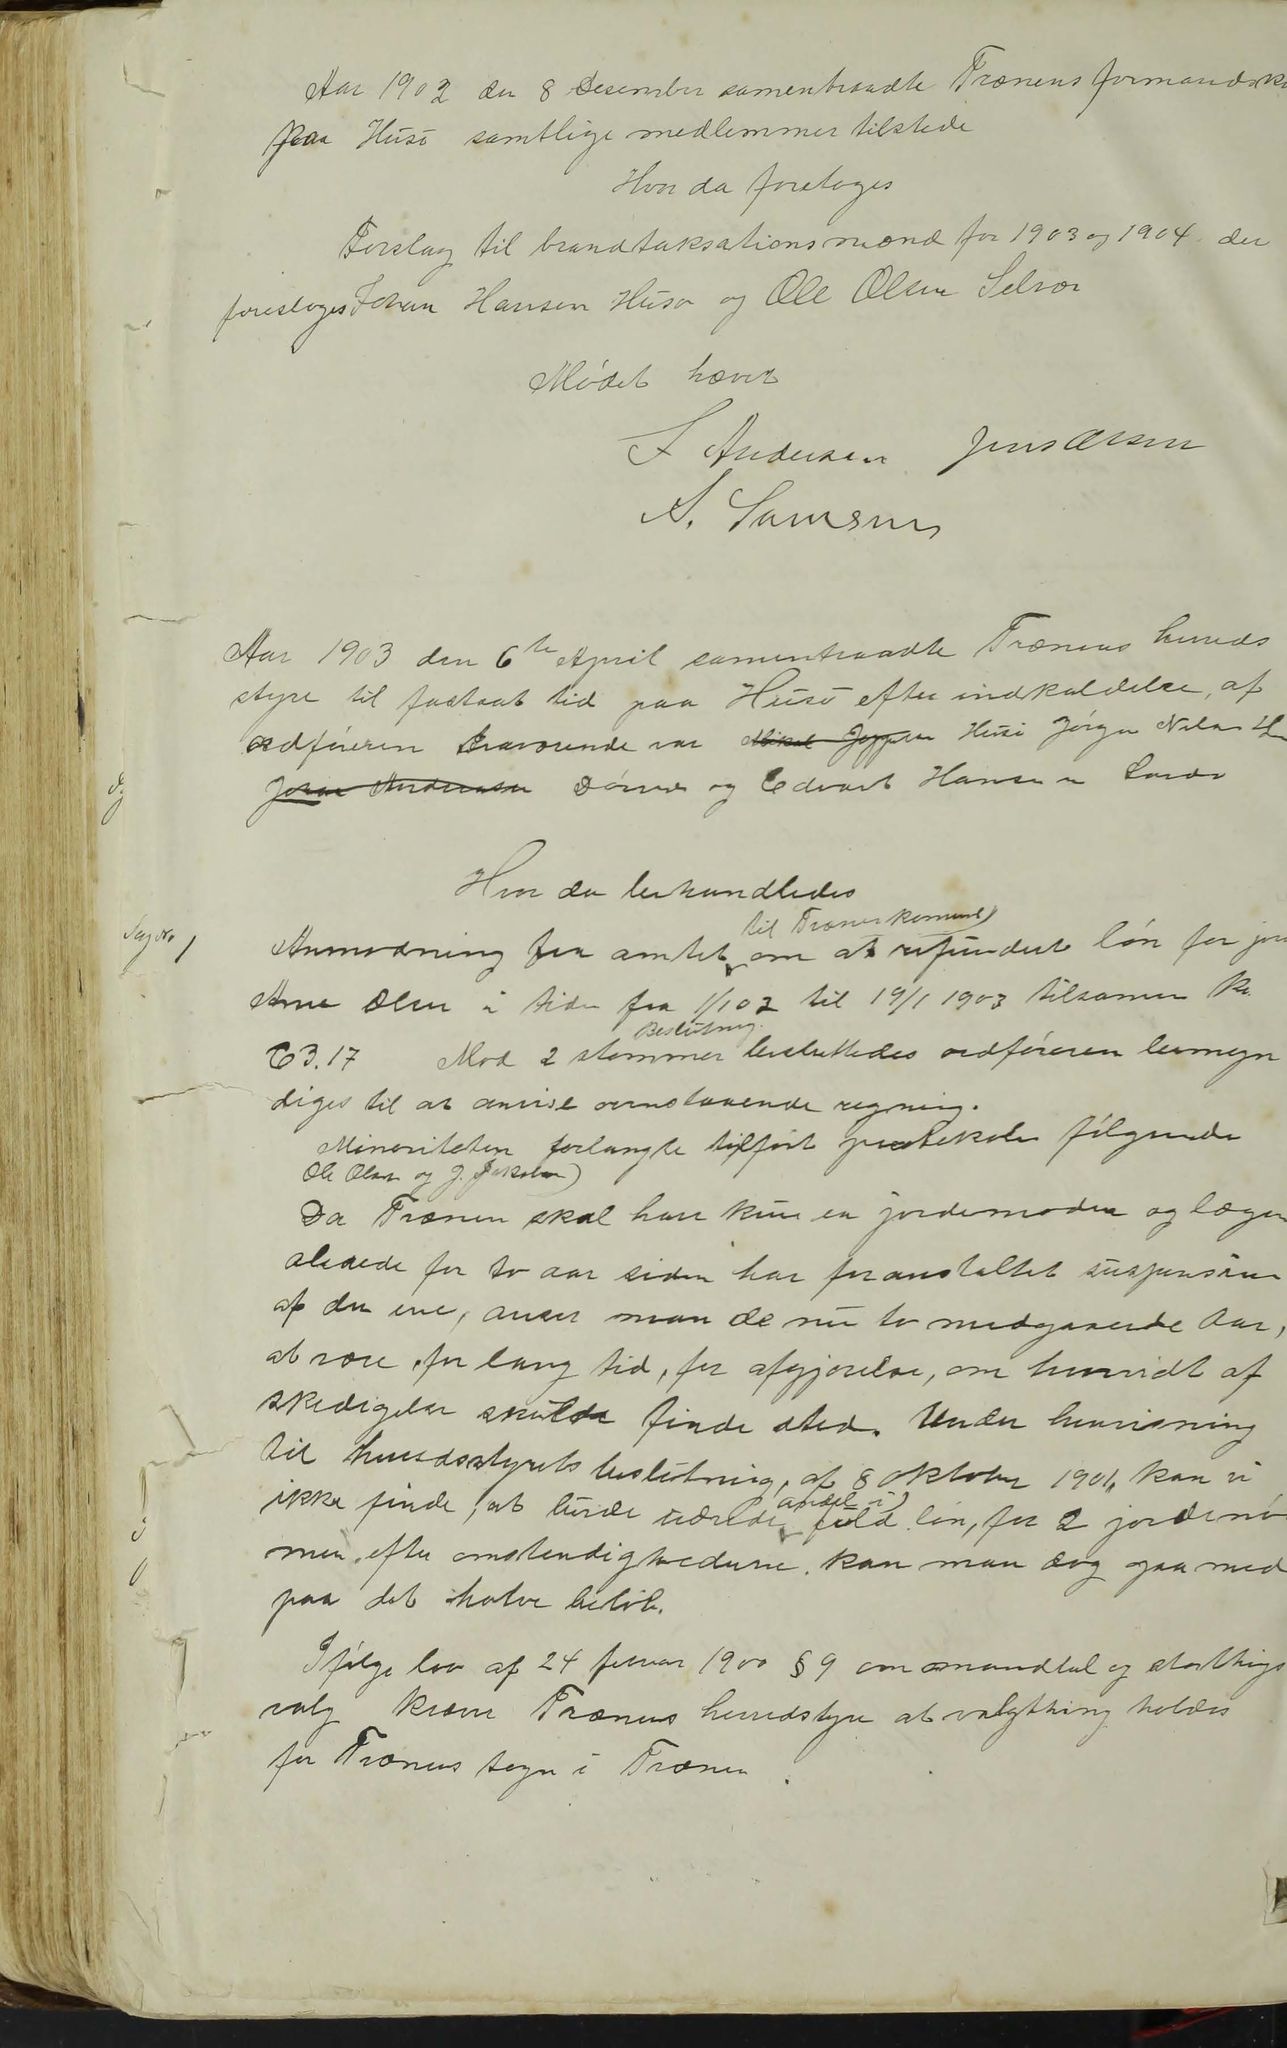 Aar 1902 den 8 Desember samentraadte Trænens formandsk
paa Husø samtlige medlemmer tilstede
Hvor da foretoges
Forslag til brandtaksationsmænd for 1903 og 1904. der
foresloges Johan Hansen Husø og Ole Olsen Selvær
Mødet hævet
Andersen Jens Olsen
A. Samsens
Aar 1903 den 6te April samentraadte Trænens herreds
styre til fastsat tid paa Husø efter indkaldelse, af
ordføreren fraværende var Mikal Jeppesen Husø Jørgen Nils
Johan Andreassen Dørvær og Edvart Hansen
Hvor da behandledes
til Trænenkomune)
Sag No 1
Anmodning fra amtet om at refundert løn for jor
Anne Olsen i tiden fra 1/1 02 til 19/1 1903 tilsamen Kr.
63.17 Mod 2 stemmer besluttedes ordføreren bemyn
Beslutning.
diges til at anvise ovenstaaende regning.
Minoriteten forlangte tilført protokolen følgende
Ole Olsen og J. Jakobsen)
Da Trænen skal have kun en jordemoder og lægen
allerede for to aar siden har foranstaltet suspension
af den ene, anser man de nu to medgaaende Aar,
at være for lang tid, for afgjørelse, om hvorvidt af
skedigelse skulde finde sted. Under henvisning
til herredsstyrets beslutning, af 8 oktober 1901, kan vi
ikke finde, at burde udrede fuld løn, for 2 jordemø
andel i)
men, efter omstendighederne. kan man dog gaa med
paa det halve beløb.
Ifølge lov af 24 februar 1900 § 9 om mandtal og storthings
valg kræver Trænens herredstyre at valgthing holdes
for Trænens sogn i Trænen.